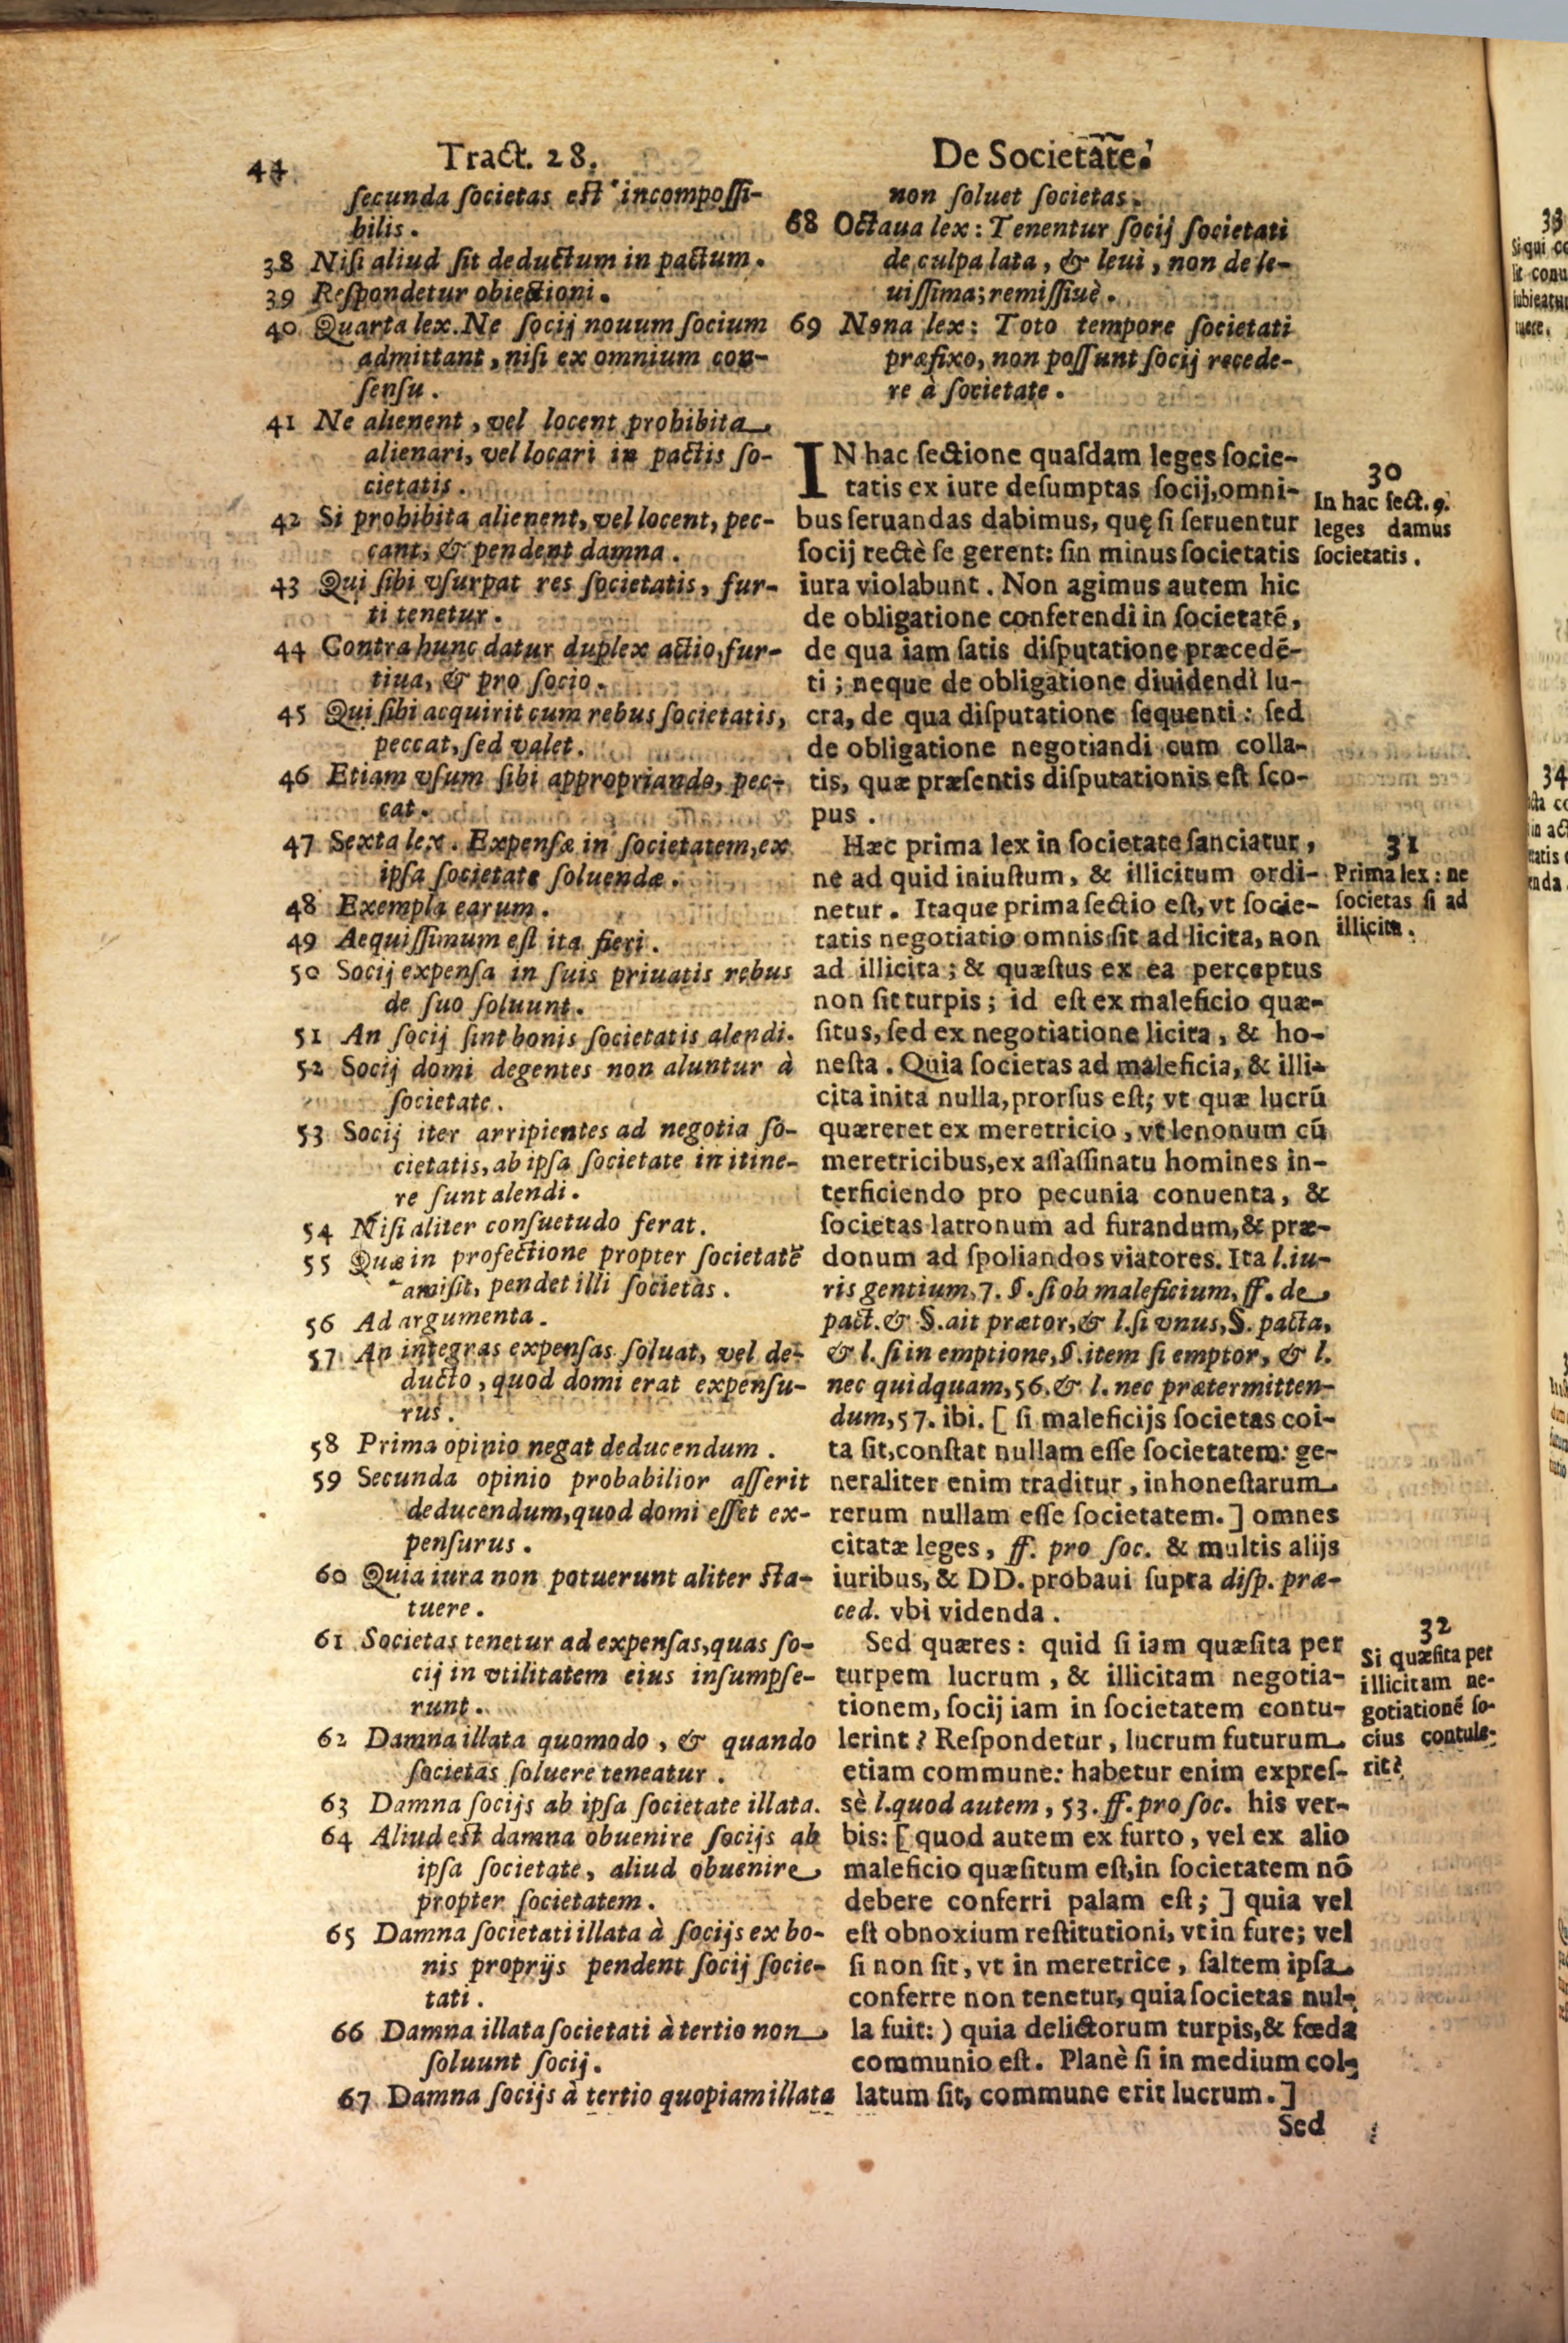 44 Tract. 28. De Societate.
ſecunda ſocietas eſt incompoſſi-
bilis.
38 Niſi aliud ſit deductum in pactum.
39 Reſpondetur obiectioni.
40 Quarta lex. Ne ſocij nouum ſocium
admittant, niſi ex omnium con-
ſenſu.
41 Ne alienent, vel locent prohibita
alienari, vel locari in pactis ſo-
cietatis.
42 Si prohibita alienent, vel locent, pec-
cant, & pendent damna.
43 Qui ſibi vſurpat res ſocietatis, fur-
ti tenetur.
44 Contra hunc datur duplex actio, fur-
tiua, & pro ſocio.
45 Qui ſibi acquirit cum rebus ſocietatis,
peccat, ſed valet.
46 Etiam vſum ſibi appropriando, pec-
cat.
47 Sexta lex. Expenſæ in ſocietatem, ex
ipſa ſocietate ſoluendæ.
48 Exempla earum.
49 Aequiſſimum eſt ita fieri.
50 Socij expenſa in ſuis priuatis rebus
de ſuo ſoluunt.
51 An ſocij ſint bonis ſocietatis alendi.
52 Socij domi degentes non aluntur à
ſocietate.
53 Socij iter arripientes ad negotia ſo-
cietatis, ab ipſa ſocietate in itine-
re ſunt alendi.
54 Niſi aliter conſuetudo ferat.
55 Quæ in profectione propter ſocietatē
amiſit, pendet illi ſocietas.
56 Ad argumenta.
57 An integras expenſas ſoluat, vel de-
ducto, quod domi erat expenſu-
rus.
58 Prima opinio negat deducendum.
59 Secunda opinio probabilior aſſerit
deducendum, quod domi eſſet ex-
penſurus.
60 Quia iura non potuerunt aliter ſta-
tuere.
61 Societas tenetur ad expenſas, quas ſo-
cij in vtilitatem eius inſumpſe-
runt.
62 Damna illata quomodo, & quando
ſocietas ſoluere teneatur.
63 Damna ſocijs ab ipſa ſocietate illata.
64 Aliud eſt damna obuenire ſocijs ab
ipſa ſocietate, aliud obuenire
propter ſocietatem.
65 Damna ſocietati illata à ſocijs ex bo-
nis proprijs pendent ſocij ſocie-
tati.
66 Damna illata ſocietati à tertio non
ſoluunt ſocij.
67 Damna ſocijs à tertio quopiam illata
non ſoluet ſocietas.
68 Octaua lex: Tenentur ſocij ſocietati
de culpa lata, & leui, non de le-
uiſſima; remiſſiuè.
69 Nona lex: Toto tempore ſocietati
præfixo, non poſſunt ſocij recede-
re à ſocietate.
IN hac ſectione quaſdam leges ſocie-
tatis ex iure deſumptas ſocij, omni-
bus ſeruandas dabimus, quę ſi ſeruentur
ſocij rectè ſe gerent: ſin minus ſocietatis
iura violabunt. Non agimus autem hic
de obligatione conferendi in ſocietatē,
de qua iam ſatis diſputatione præcedē-
ti; neque de obligatione diuidendi lu-
cra, de qua diſputatione ſequenti: ſed
de obligatione negotiandi cum colla-
tis, quæ præſentis diſputationis eſt ſco-
pus.
30
In hac ſect. 9.
leges damus
ſocietatis.
Hæc prima lex in ſocietate ſanciatur,
ne ad quid iniuſtum, & illicitum ordi-
netur. Itaque prima ſectio eſt, vt ſocie-
tatis negotiatio omnis ſit ad licita, non
ad illicita; & quæſtus ex ea perceptus
non ſit turpis; id eſt ex maleficio quæ-
ſitus, ſed ex negotiatione licita, & ho-
neſta. Quia ſocietas ad maleficia, & illi-
cita inita nulla, prorſus eſt; vt quæ lucrū
quæreret ex meretricio, vt lenonum cū
meretricibus, ex aſſaſſinatu homines in-
terficiendo pro pecunia conuenta, &
ſocietas latronum ad furandum, & præ-
donum ad ſpoliandos viatores. Ita l. iu-
ris gentium, 7. §. ſi ob maleficium, ff. de
pact. & §. ait prætor, & l. ſi vnus, §. pacta,
& l. ſi in emptione, §. item ſi emptor, & l.
nec quidquam, 56. & l. nec prætermitten-
dum, 57. ibi. [ ſi maleficijs ſocietas coi-
ta ſit, conſtat nullam eſſe ſocietatem: ge-
neraliter enim traditur, inhoneſtarum
rerum nullam eſſe ſocietatem. ] omnes
citatæ leges, ff. pro ſoc. & multis alijs
iuribus, & DD. probaui ſupra diſp. præ-
ced. vbi videnda.
31
Prima lex: ne
ſocietas ſi ad
illicita.
Sed quæres: quid ſi iam quæſita per
turpem lucrum, & illicitam negotia-
tionem, ſocij iam in ſocietatem contu-
lerint? Reſpondetur, lucrum futurum
etiam commune: habetur enim expreſ-
sè l. quod autem, 53. ff. pro ſoc. his ver-
bis: [ quod autem ex furto, vel ex alio
maleficio quæſitum eſt, in ſocietatem nō
debere conferri palam eſt; ] quia vel
eſt obnoxium reſtitutioni, vt in fure; vel
ſi non ſit, vt in meretrice, ſaltem ipſa
conferre non tenetur, quia ſocietas nul-
la fuit: ) quia delictorum turpis, & fœda
communio eſt. Planè ſi in medium col-
latum ſit, commune erit lucrum. ]
32
Si quæſita per
illicitam ne-
gotiationē ſo-
cius contule-
rit?
Sed